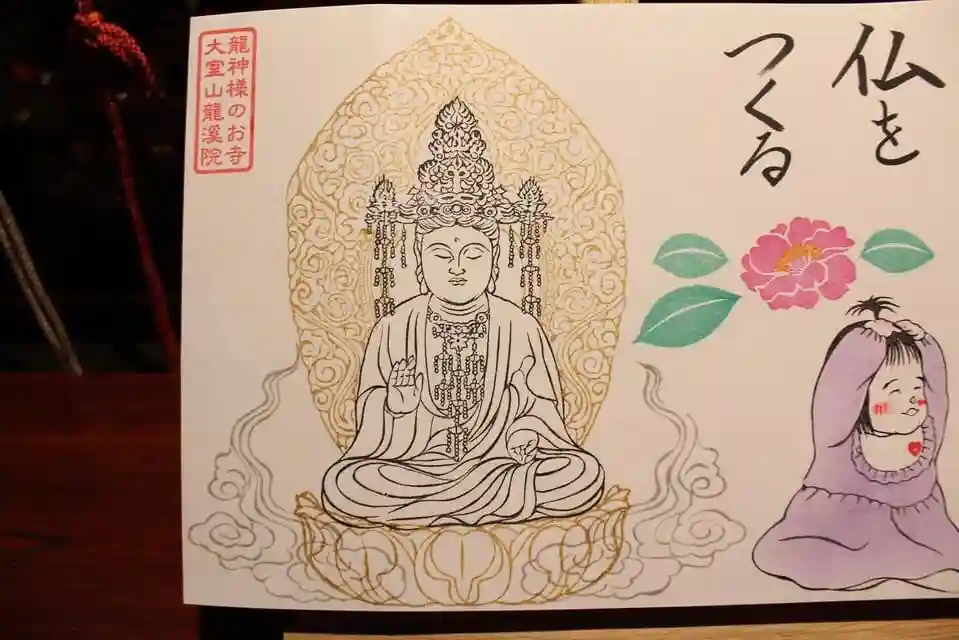 仏を
つくる
龍神様のお寺
大室山龍溪院